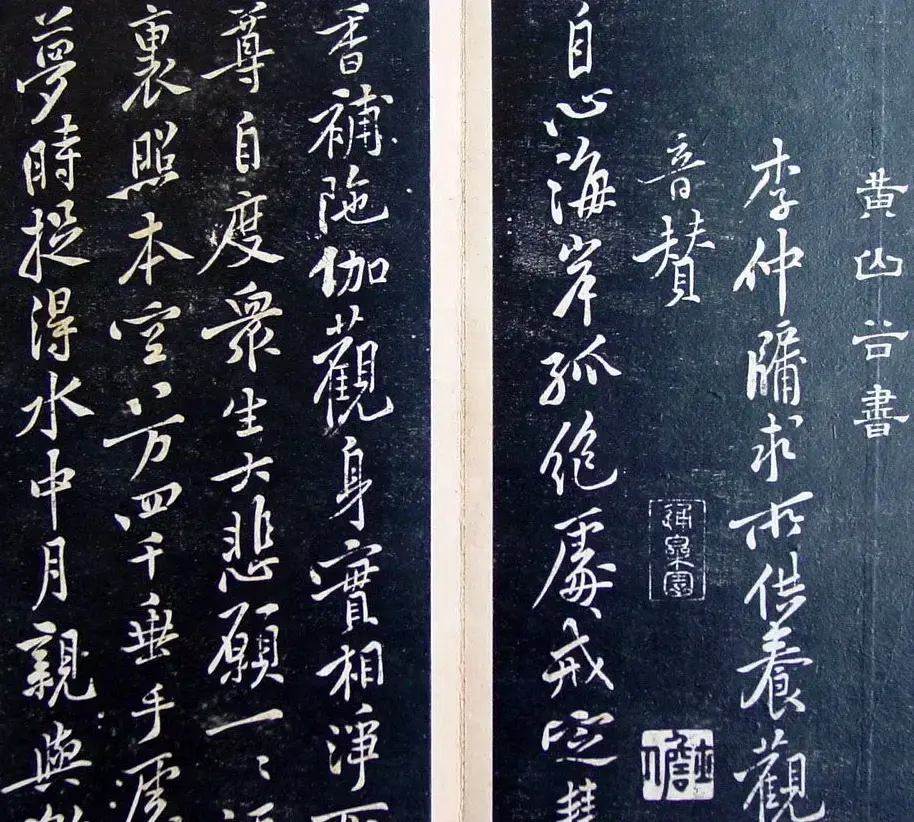 黄山谷書
李仲牖求所供養觀
音賛
自心海岸孤絶處戒定慧
香補陁伽觀身實相淨
尊自度衆生大悲願一〻
裏照本空八万四千垂手處
夢時捉得水中月親與